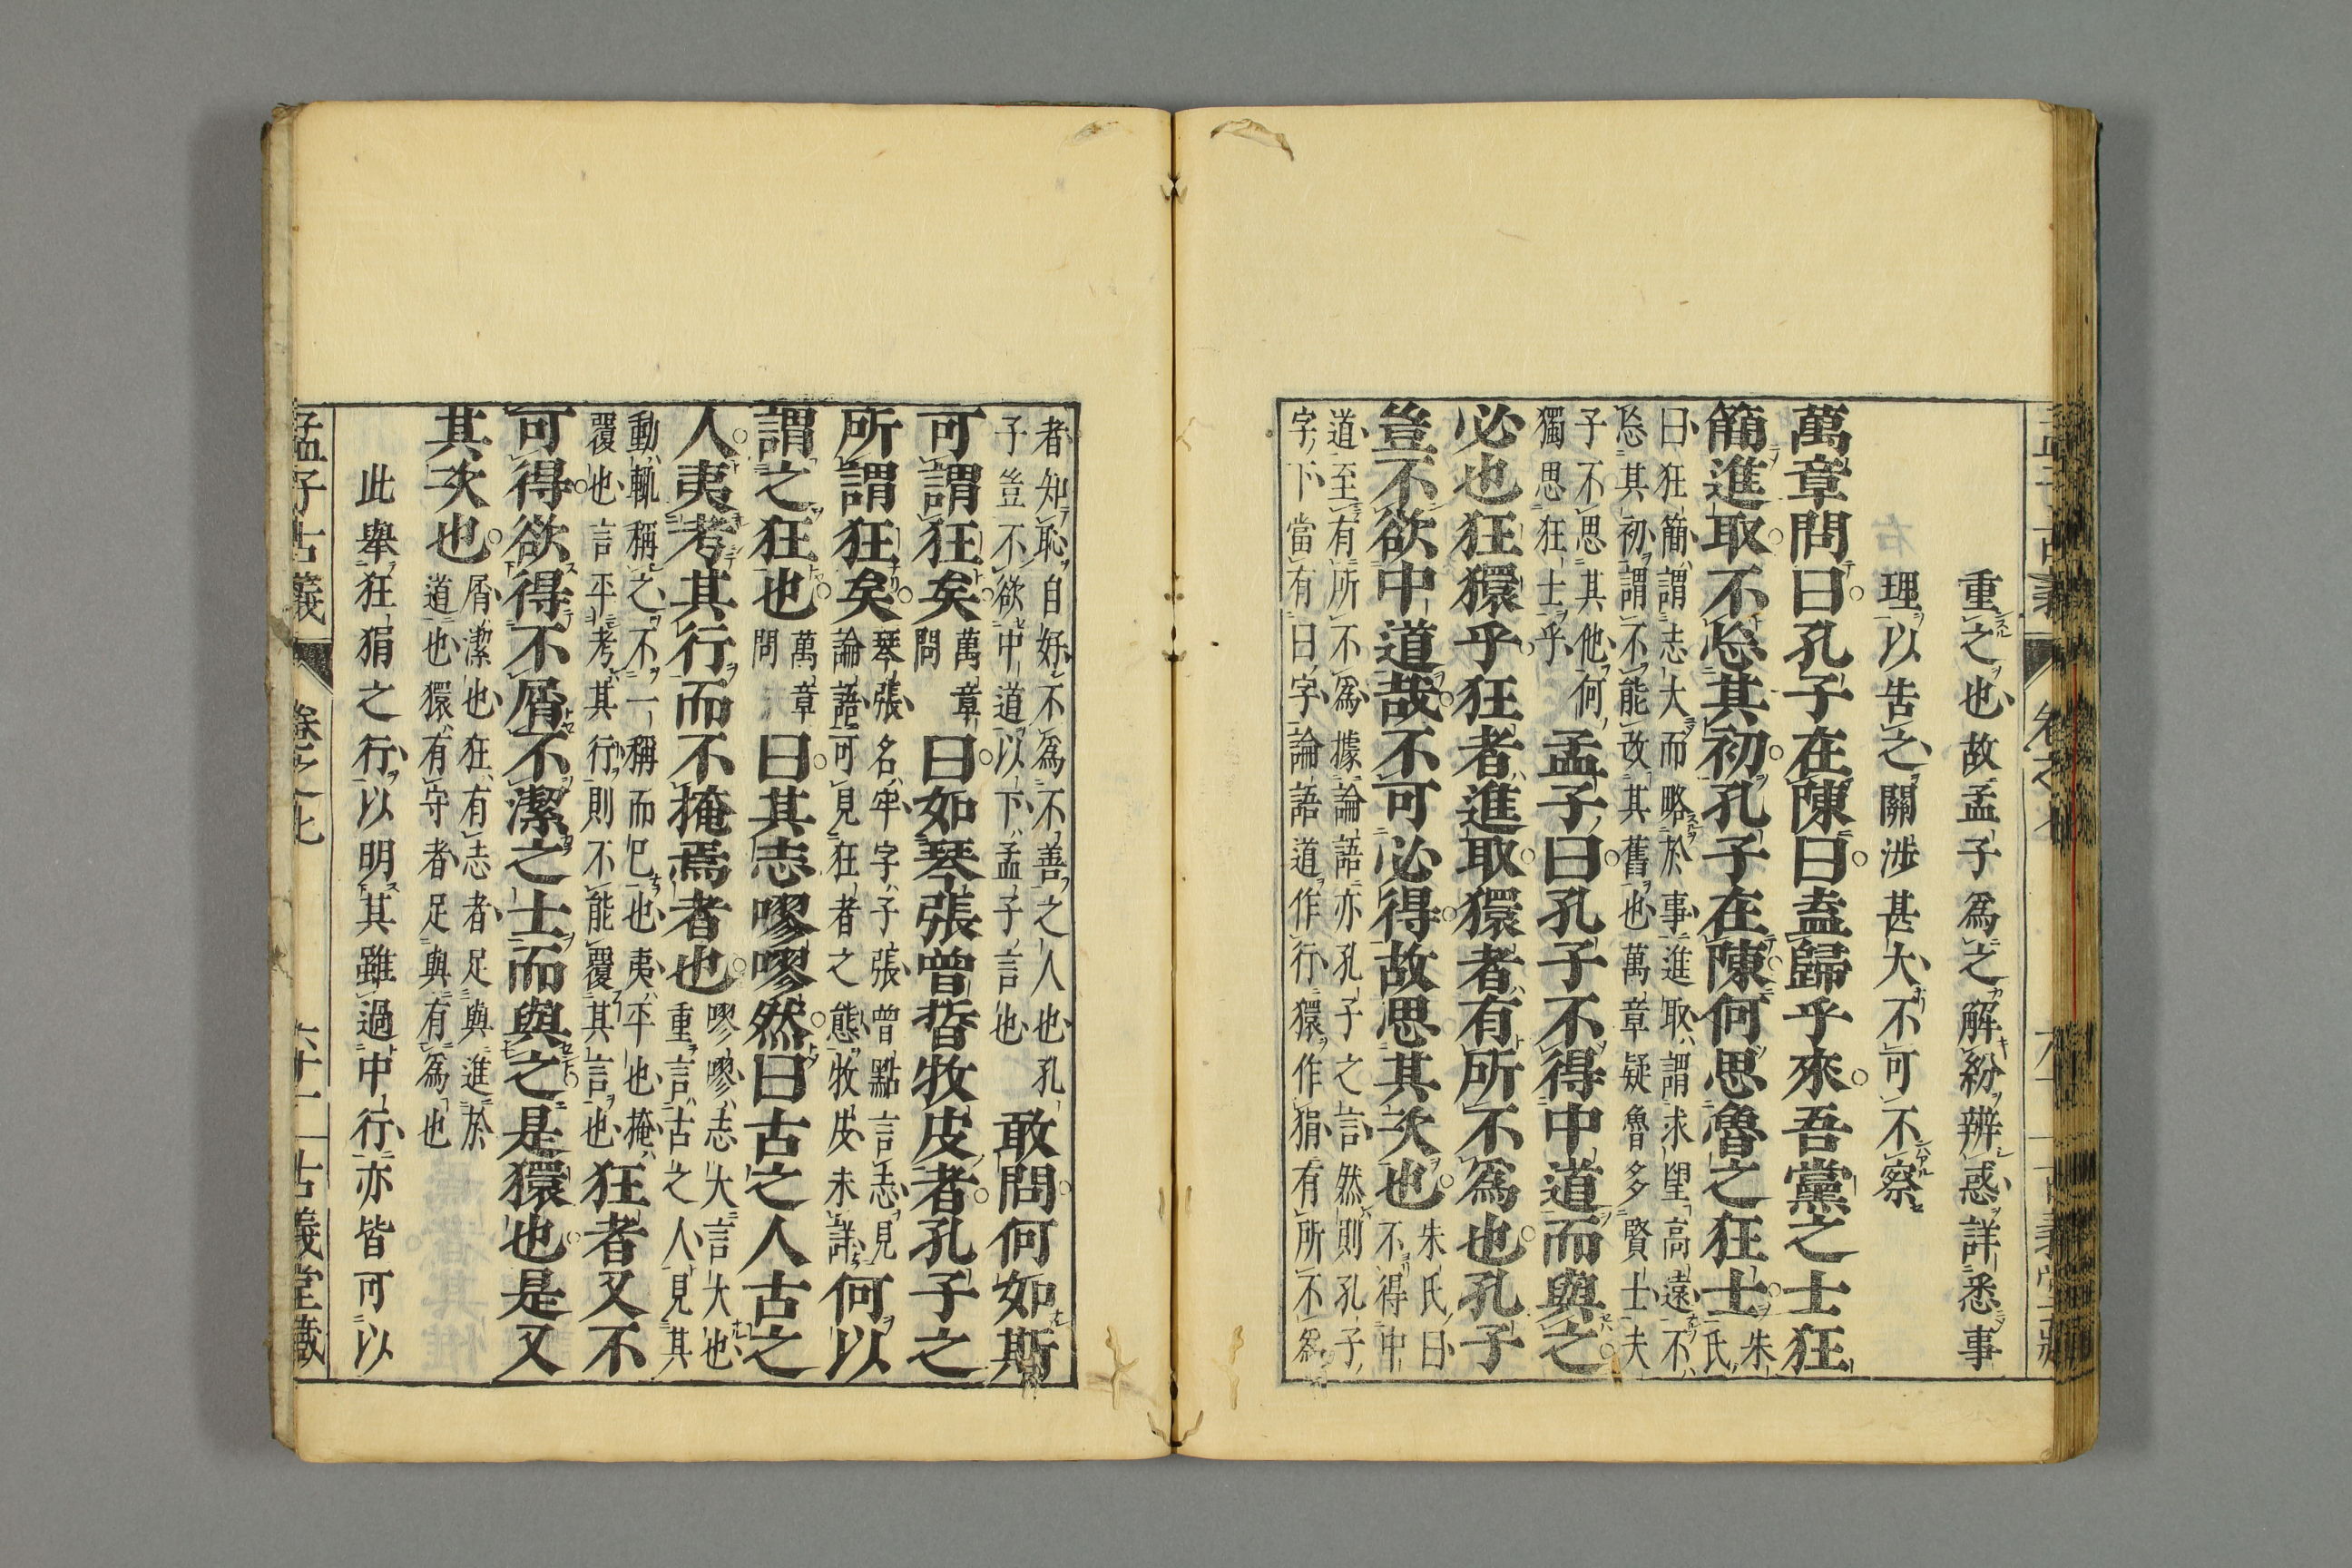 重之也故孟子爲之解紛辨惑詳悉事
理以告之關涉甚大不可不察
萬章問曰孔子在陳曰盍歸乎來吾黨之士狂
簡進取不忘其初孔子在陳何思魯之狂士朱氏
曰狂簡謂志大而略於事進取謂求望高遠不
忘其初謂不能改其舊也萬章疑魯多賢士夫
子不思其他何
獨思狂士乎
孟子曰孔子不得中道而與之
必也狂獧乎狂者進取獧者有所不爲也孔子
豈不欲中道哉不可必得故思其次也朱氏曰
不得中
道至有所不爲據論語亦孔子之言然則孔子
字下當有曰字論語道作行獧作狷有所不爲
者知恥自好不爲不善之人也孔
子豈不欲中道以下孟子言也
敢問何如斯
可謂狂矣萬章
問
曰如琴張曾晳牧皮者孔子之
所謂狂矣琴張名牢字子張曾點言志見
論語可見狂者之態牧皮未詳
何以
謂之狂也萬章
問
曰其志嘐嘐然曰古之人古之
人夷考其行而不掩焉者也嘐嘐志大言大也
重言古之人見其
動輒稱之不一稱而已也夷平也掩
覆也言平考其行則不能覆其言也
狂者又不
可得欲得不屑不潔之士而與之是獧也是又
其次也屑潔也狂有志者足與進於
道也獧有守者足與有爲也
此舉狂狷之行以明其雖過中行亦皆可以
孟子古義 卷之七 六十一 古義堂藏